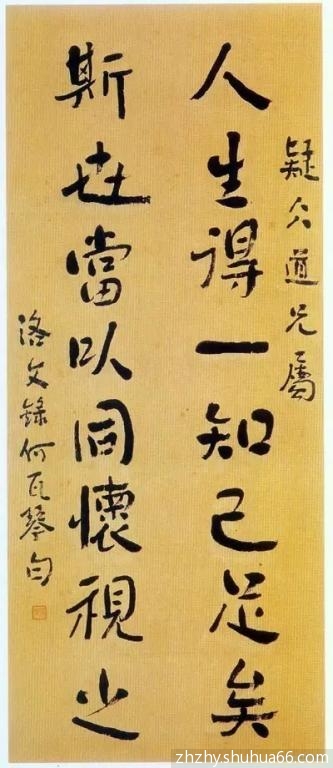 疑仌道兄屬
人生得一知己足矣
斯世當以同懷視之
洛文錄何瓦琴句
zhzhy.shuhua66.com